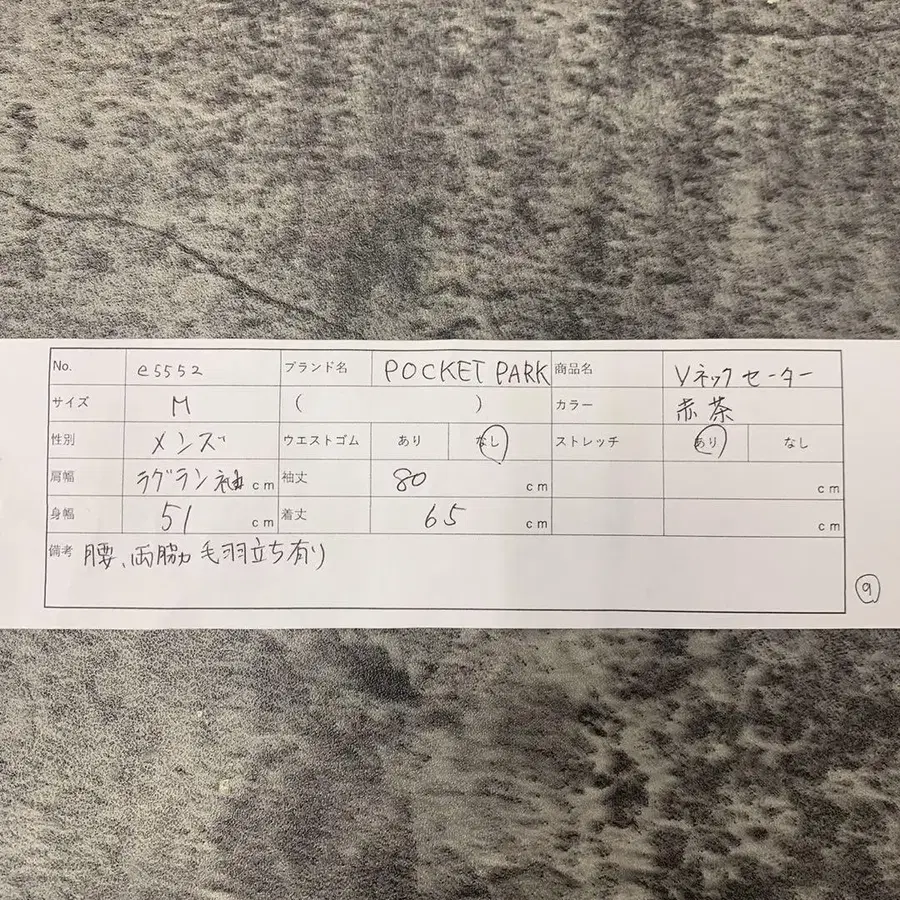 No. e5552 ブランド名 POCKET PARK 商品名 Vネックセーター
サイズ M ( ) カラー 赤茶
性別 メンズ ウエストゴム あり なし ストレッチ あり なし
肩幅 ラグラン袖 cm 袖丈 80 cm cm
身幅 51 cm 着丈 65 cm cm
備考 腰、両脇 毛羽立ち有り
9